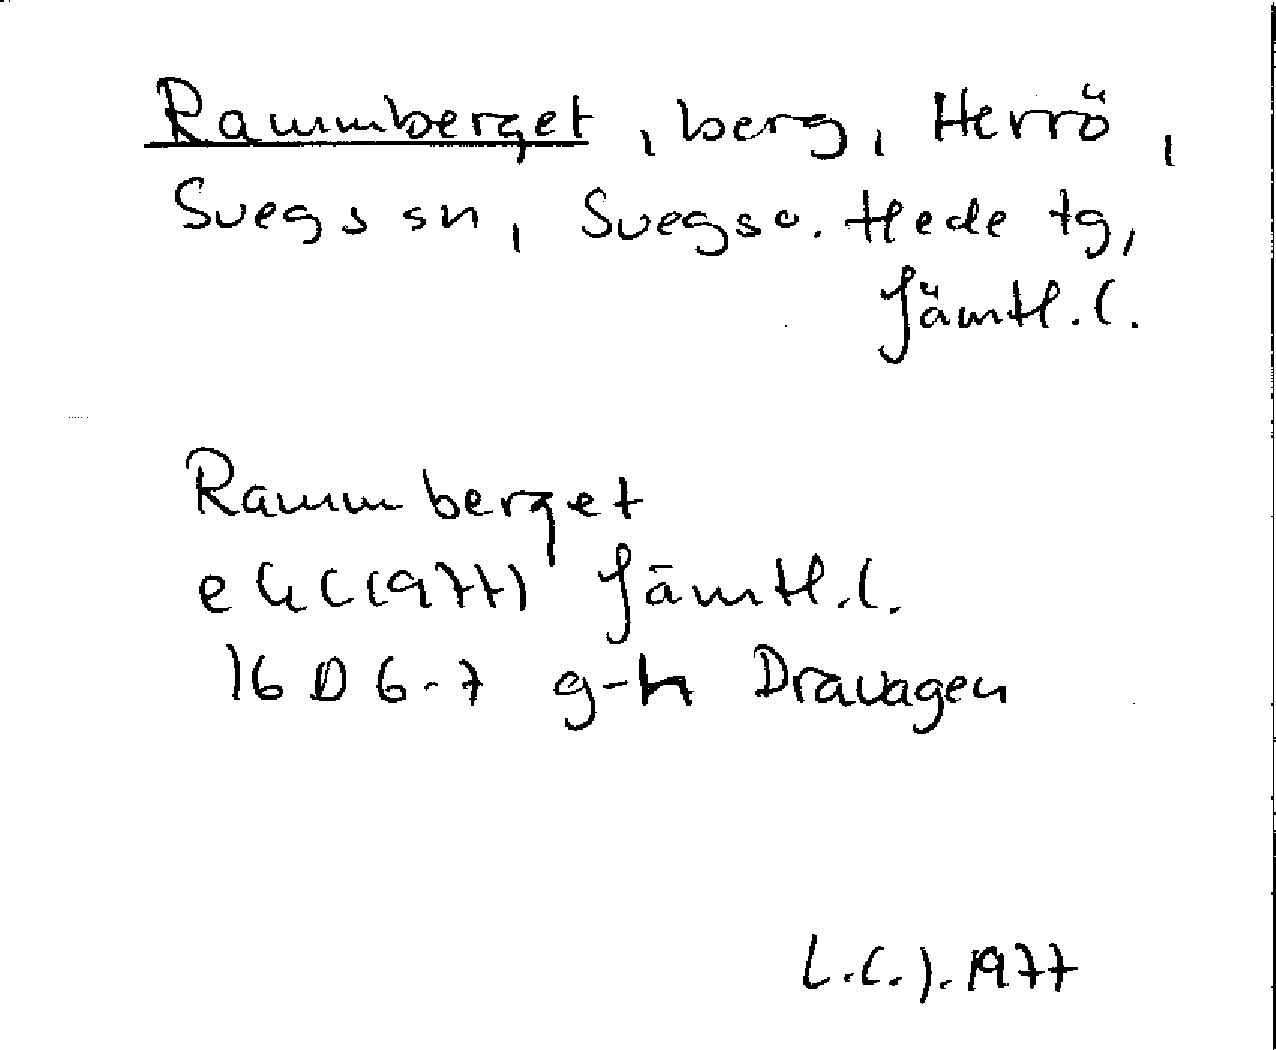 Rammberget, berg, Herrö,
Svegs sn, Svegs o. Hede tg,
Jämtl.l.
Rammberget
e GK (1977) Jämtl.l.
16 D 6-7 g-h Dravagen
L.C.J. 1977